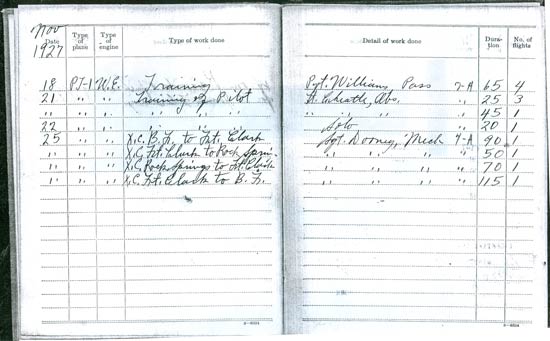 Nov
1927
Date Type of plane Type of engine Type of work done Detail of work done Dura-tion No. of flights
18 PT-1 W.E. Training Pvt. Williams, Pass 7-A 65 4
21 " " Training of Pilot Lt. Wheatle, Obs. " 25 3
" " " " " " " " " " 45 1
22 " " " " " Solo " 20 1
25 " " X.C. B.F. to Ft. Clark Sgt. Dooney, Mech 7-A 90 1
" " " X.C. Ft. Clark to Rock Springs " " " " 50 1
" " " X.C. Rock Springs to Ft. Clark " " " " 70 1
" " " X.C. Ft. Clark to B.F. " " " " 115 1